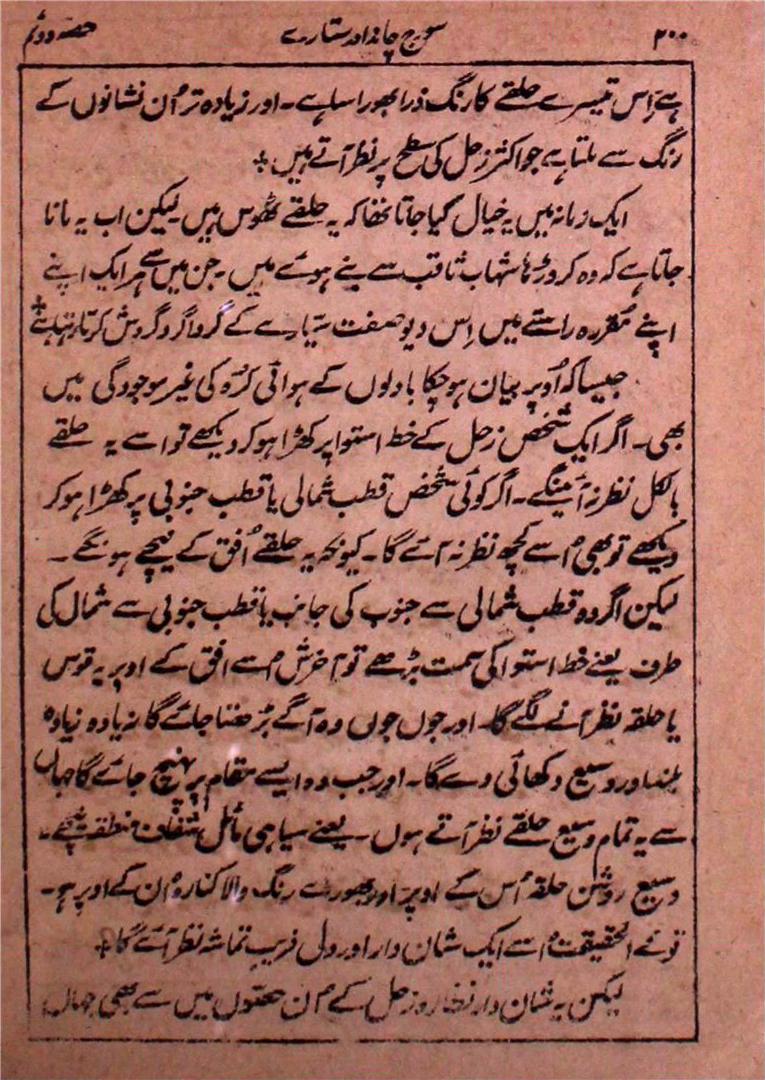 ۲۰۰ سورج چاند اور ستارے حصہ دوئم
ہے اِس تیسرے حلقے کا رنگ ذرا بھورا سا ہے۔ اور زیادہ تر اُن نشانوں کے
رنگ سے ملتا ہے جو اکثر زحل کی سطح پر نظر آتے ہیں +
ایک زمانہ میں یہ خیال کیا جاتا تھا کہ یہ حلقے ٹھوس ہیں لیکن اب یہ مانا
جاتا ہے کہ وہ کروڑہا شہاب ثاقب سے بنے ہوئے ہیں۔ جن میں سے ہر ایک اپنے
اپنے مُقررہ راستے میں اِس دیو صفت سیّارے کے گرد اگرد گردش کرتا رہتا ہے +
جیسا کہ اُوپر بیان ہو چکا بادلوں کے ہوائی کُرہ کی غیر موجودگی میں
بھی۔ اگر ایک شخص زحل کے خط استوا پر کھڑا ہو کر دیکھے تو اسے یہ حلقے
بالکل نظر نہ آئینگے۔ اگر کوئی شخص قطب شمالی یا قطب جنوبی پر کھڑا ہو کر
دیکھے تو بھی اُسے کچھ نظر نہ آئے گا۔ کیونکہ یہ حلقے اُفق کے نیچے ہونگے۔
لیکن اگر وہ قطب شمالی سے جنوب کی جانب یا قطب جنوبی سے شمال کی
طرف یعنے خط استوا کی سمت بڑھے تو آخرش اُسے افق کے اوپر یہ قوس
یا حلقہ نظر آنے لگے گا۔ اور جوں جوں وہ آگے بڑھتا جائے گا زیادہ زیادہ
بلند اور وسیع دکھائی دے گا۔ اور جب وہ ایسے مقام پر پہنچ جائے گا جہاں
سے یہ تمام وسیع حلقے نظر آتے ہوں۔ یعنے سیاہی مائل شفاف منطقہ نیچے۔
وسیع روشن حلقہ اُس کے اوپر اور بھورے رنگ والا کنارہ اُن کے اوپر ہو۔
تو فے الحقیقت اُسے ایک شان دار اور دل فریب تماشہ نظر آئے گا +
لیکن یہ شان دار نظارہ زحل کے اُن حصّوں میں سے بھی جہاں